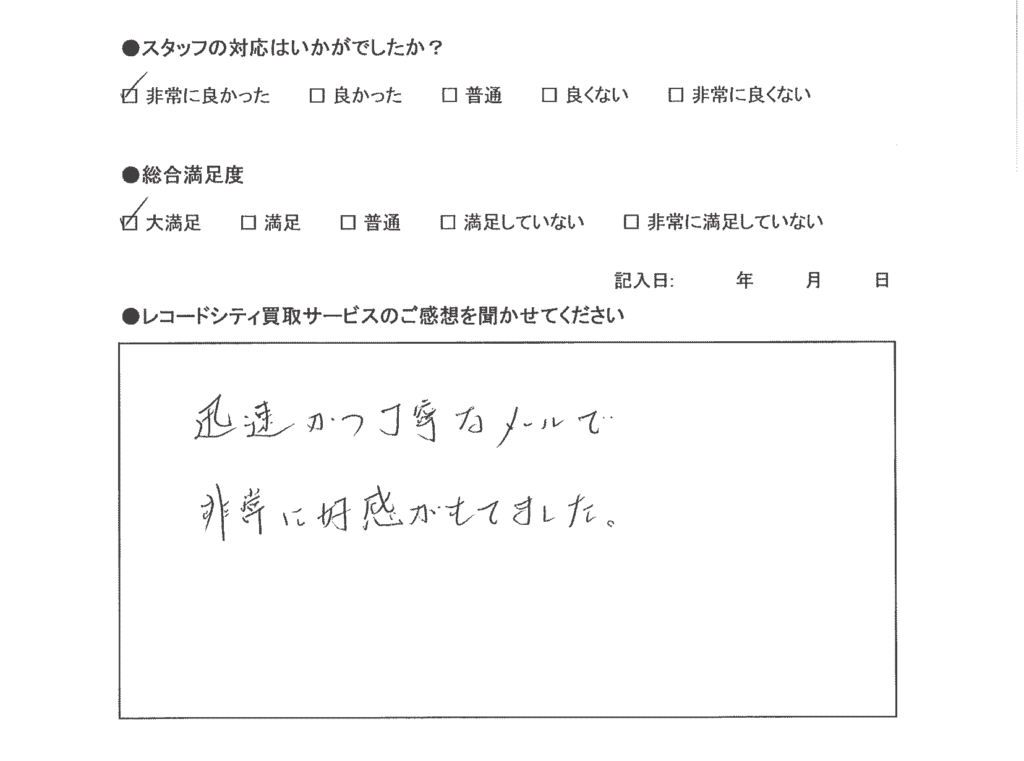 ●スタッフの対応はいかがでしたか？
☑ 非常に良かった □ 良かった □ 普通 □ 良くない □ 非常に良くない
●総合満足度
☑ 大満足 □ 満足 □ 普通 □ 満足していない □ 非常に満足していない
記入日: 年 月 日
●レコードシティ買取サービスのご感想を聞かせてください
迅速かつ丁寧なメールで
非常に好感がもてました。